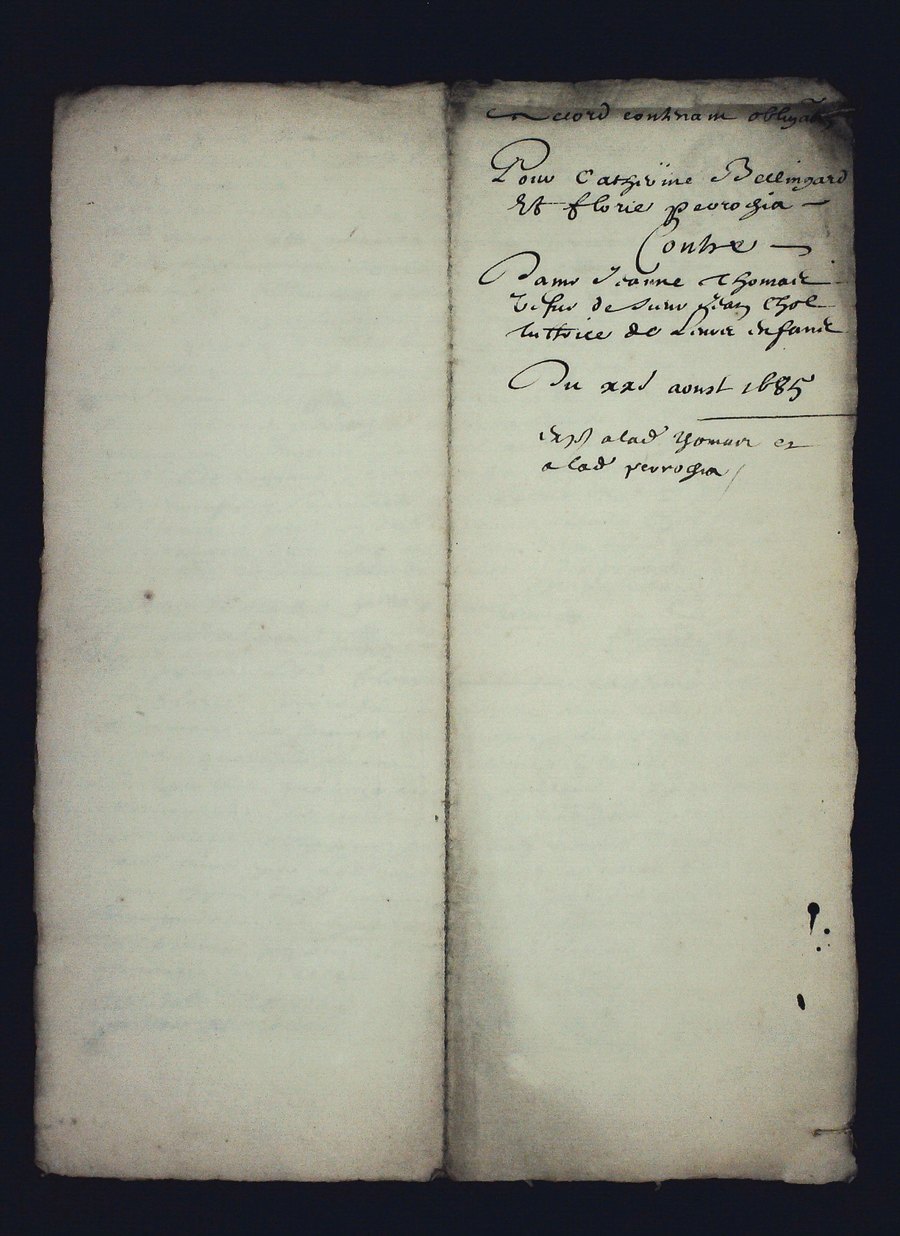 Accord contenant obliga͠on
Pour Catherine Bellingard
Et florie perrochia
Contre
Dame Jeanne Thomas
Vefve de sieur Jean Chol
tuttrice de Leurs enfans
Du xxi aoust 1685
exp̃ a lad̃ Thomas et
a lad̃ perrochia